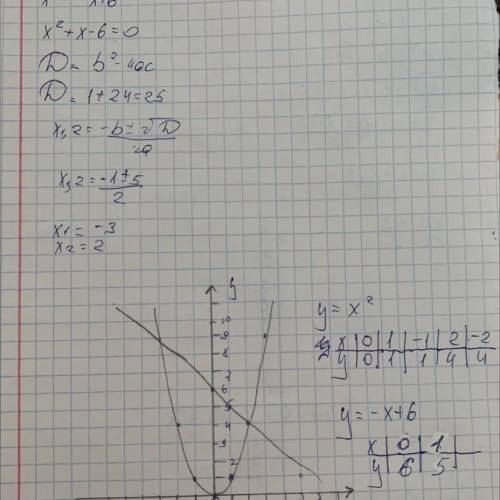 x² + x - 6 = 0
D = b² - 4ac
D = 1 + 24 = 25
x1,2 = -b ± √D / 2a
x1,2 = -1 ± 5 / 2
x1 = -3
x2 = 2
y
y = x²
x 0 1 -1 2 -2
y 0 1 1 4 4
y = -x + 6
x 0 1
y 6 5